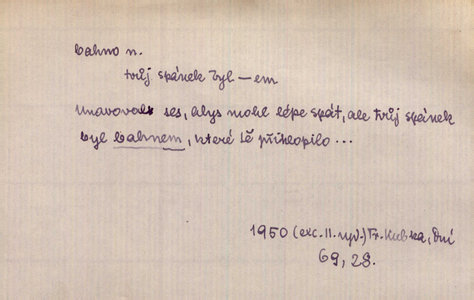 bahno n.
tvůj spánek byl — em
Unavoval ses, abys mohl lépe spát, ale tvůj spánek
byl bahnem, které tě přiklopilo ...
1950 (exc. II. vyd.) Fr. Kubka, Dní
69, 28.